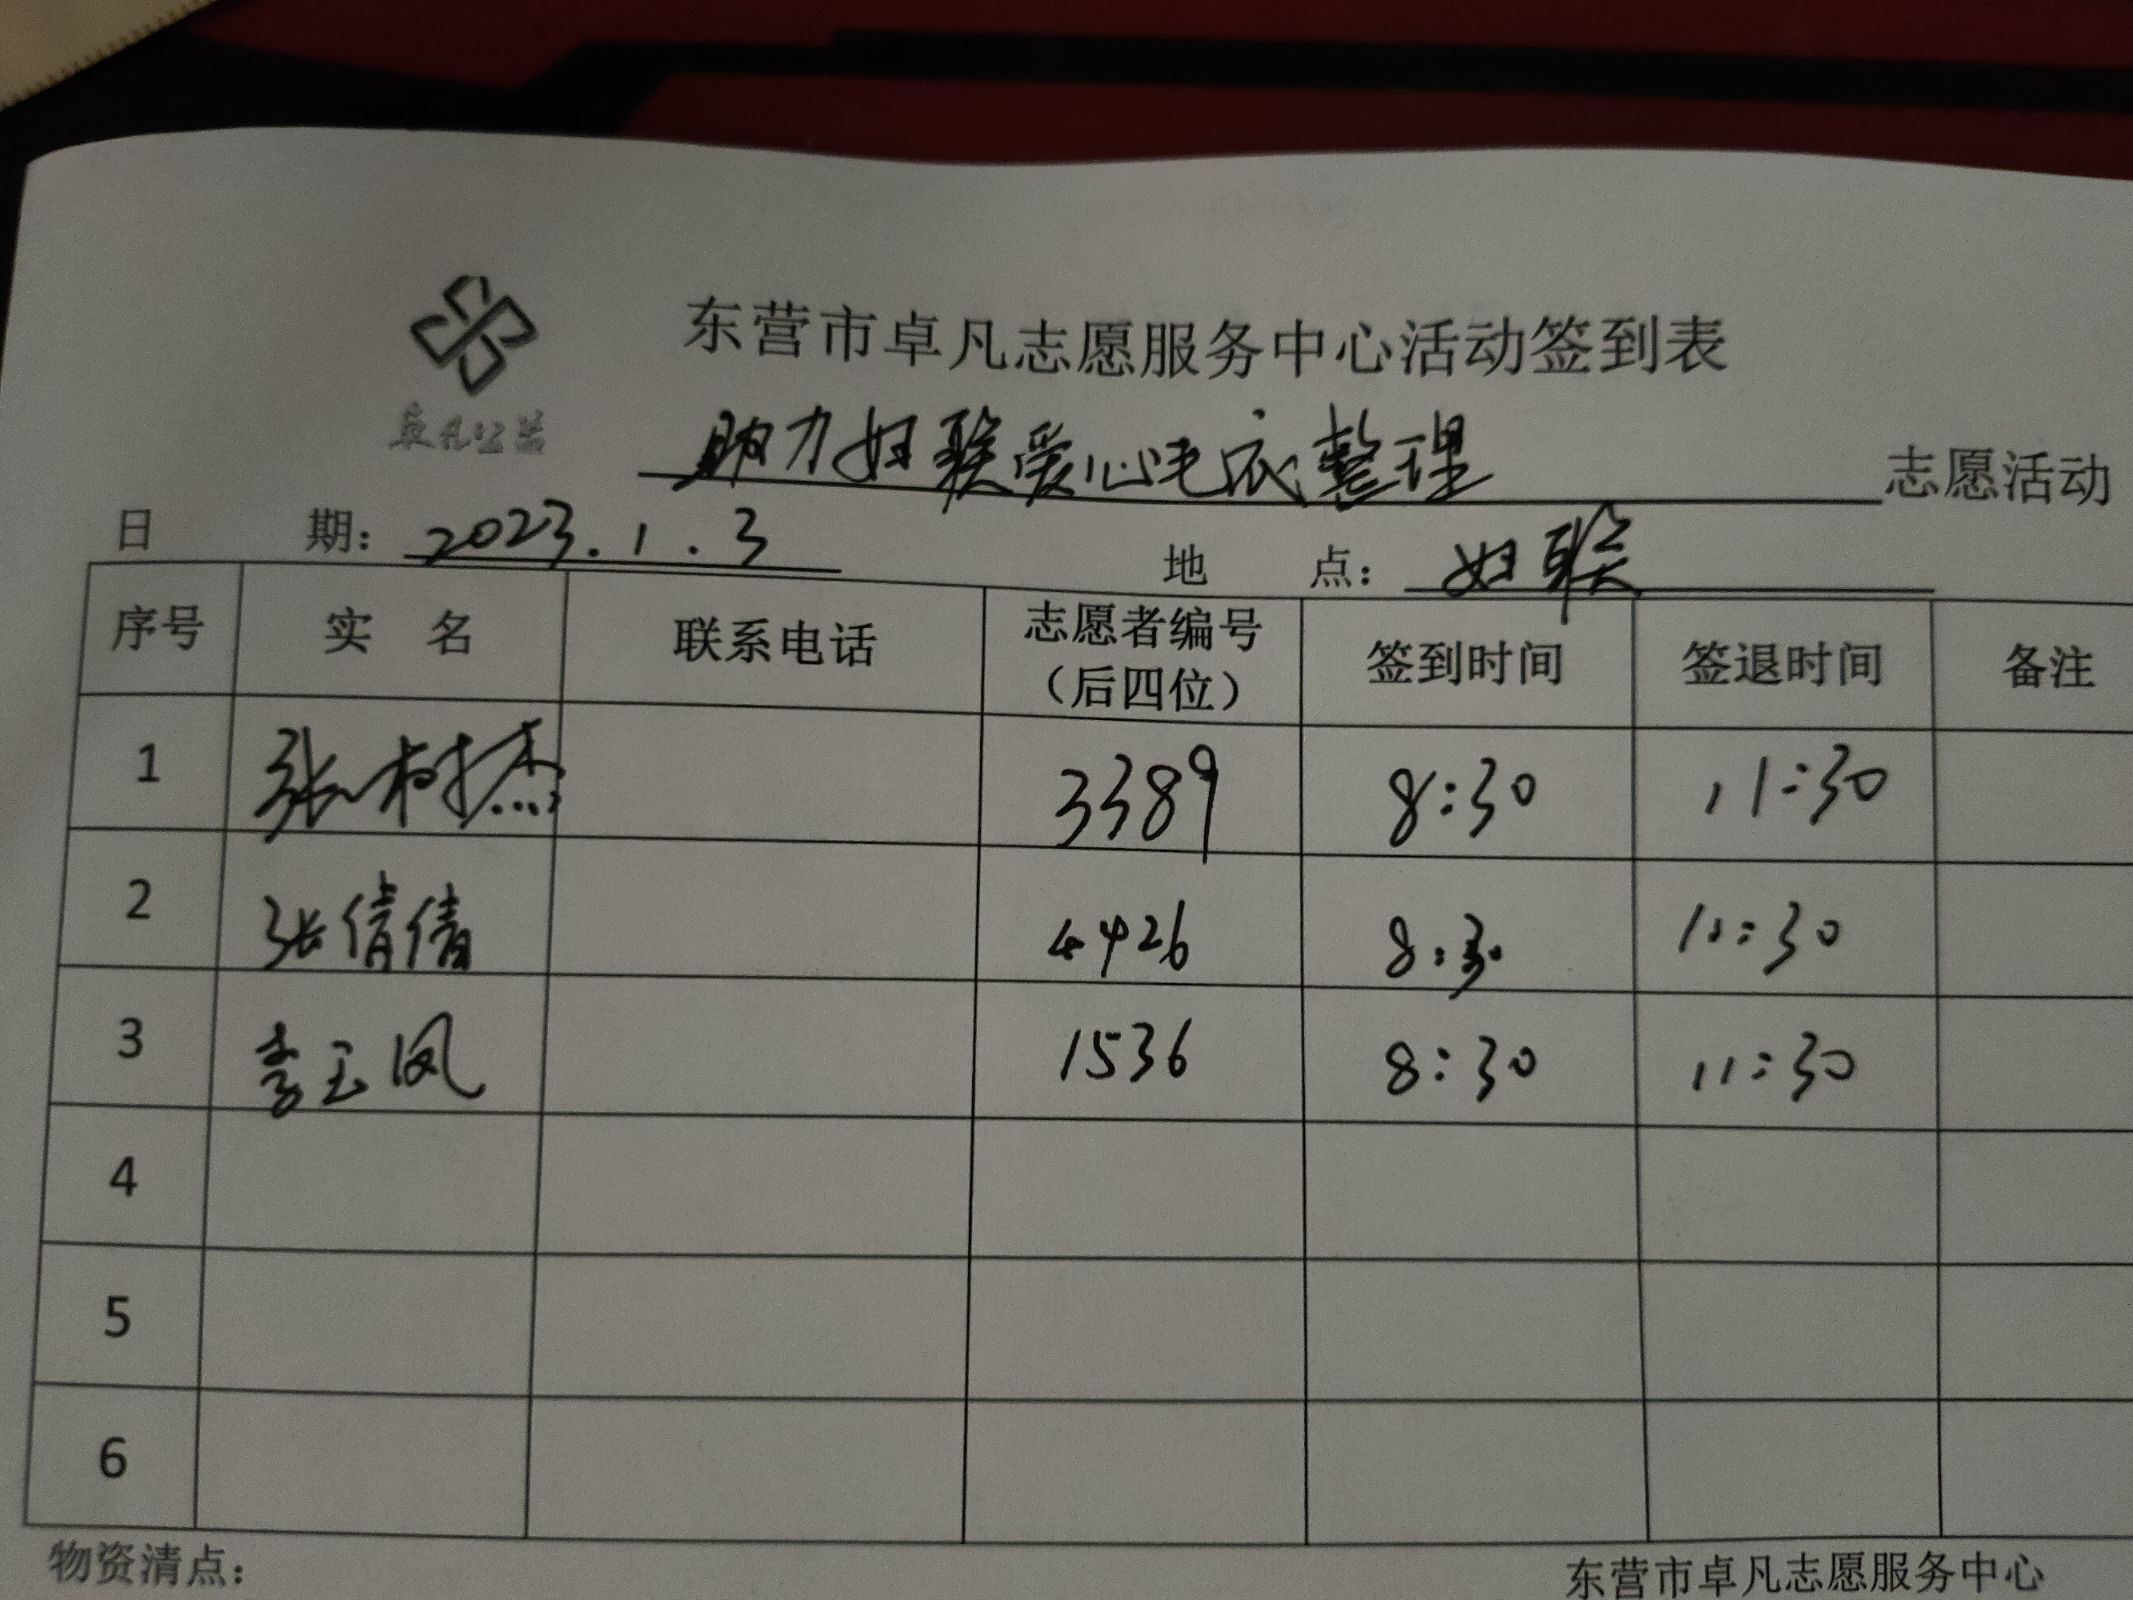 东营市卓凡志愿服务中心活动签到表
卓凡公益
助力妇联爱心毛衣整理 志愿活动
日 期: 2023.1.3 地 点: 妇联
序号 实 名 联系电话 志愿者编号（后四位） 签到时间 签退时间 备注
1 张树杰 3389 8:30 11:30
2 张倩倩 4426 8:30 11:30
3 李玉凤 1536 8:30 11:30
4
5
6
物资清点: 东营市卓凡志愿服务中心